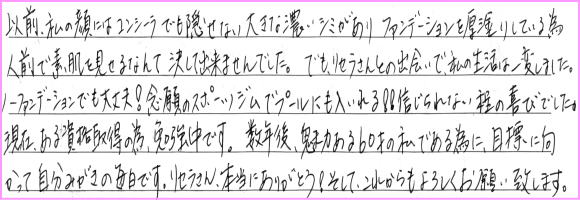 以前、私の顔にはコンシーラでも隠せない大きな濃いシミがあり ファンデーションを厚塗りしている為
人前で素肌を見せるなんて 決して出来ませんでした。でも、リセラさんとの出会いで、私の生活は一変しました。
ノーファンデーションでも大丈夫!念願のスポーツジムでプールにも入いれる!!!信じられない程の喜びでした。
現在、ある資格取得の為、勉強中です。数年後、魅力ある60才の私である為に、目標に向
かって自分みがきの毎日です。リセラさん、本当にありがとう!そして、これからもよろしくお願い致します。